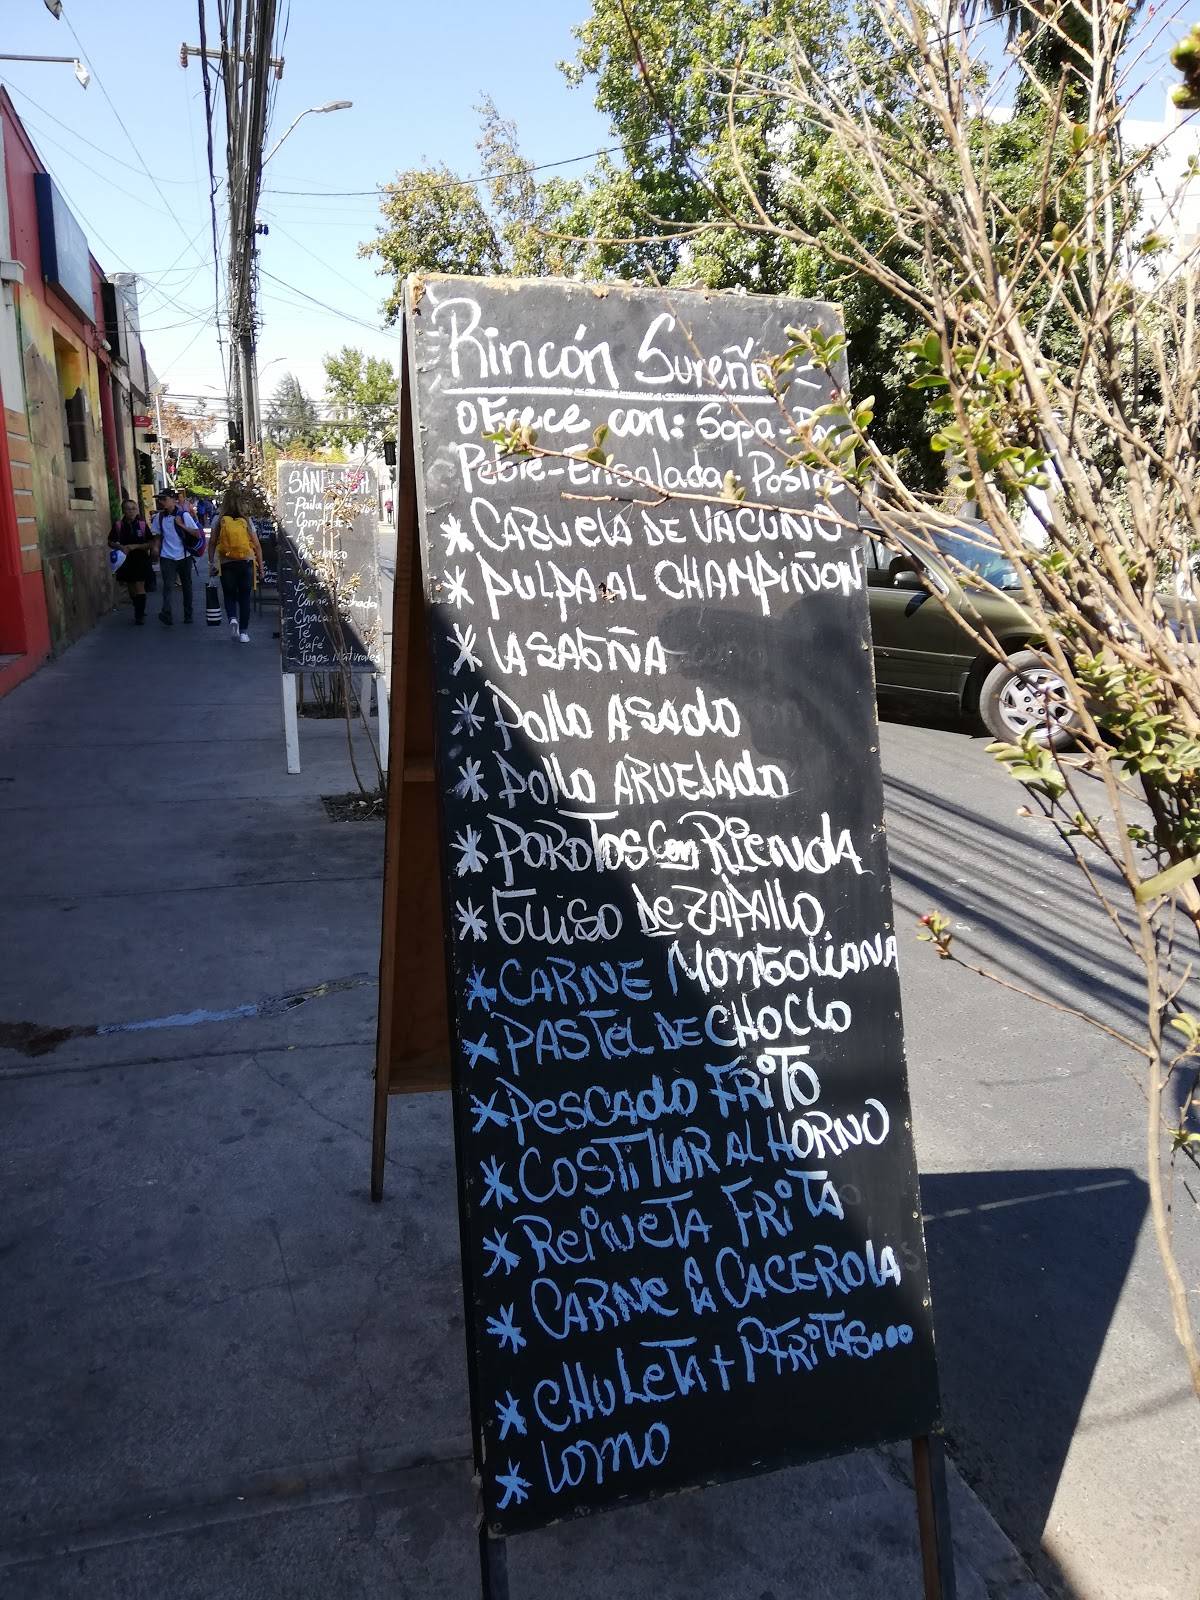 Rincón Sureño
oFrece con: Sopa-Pan
Pebre-Ensalada-Postre
* CAZUELA DE VACUNO
* PULPA AL CHAMPIÑON
* LASAGÑA
* Pollo ASADO
* Pollo ARVEJADO
* POROTOS con RIENDA
* GUISO De ZAPALLO
* CARNE MONGOLIANA
* PASTEL DE CHOCLO
* PESCADO FRITO
* COSTILLAR AL HORNO
* REINETA FRITA
* CARNE A LA CACEROLA
* CHULETA + PFRITAS...
* LOMO
SANDWICH
- As
- Churrasco
- Chacarero
- Té
- Café
- Jugos Naturales